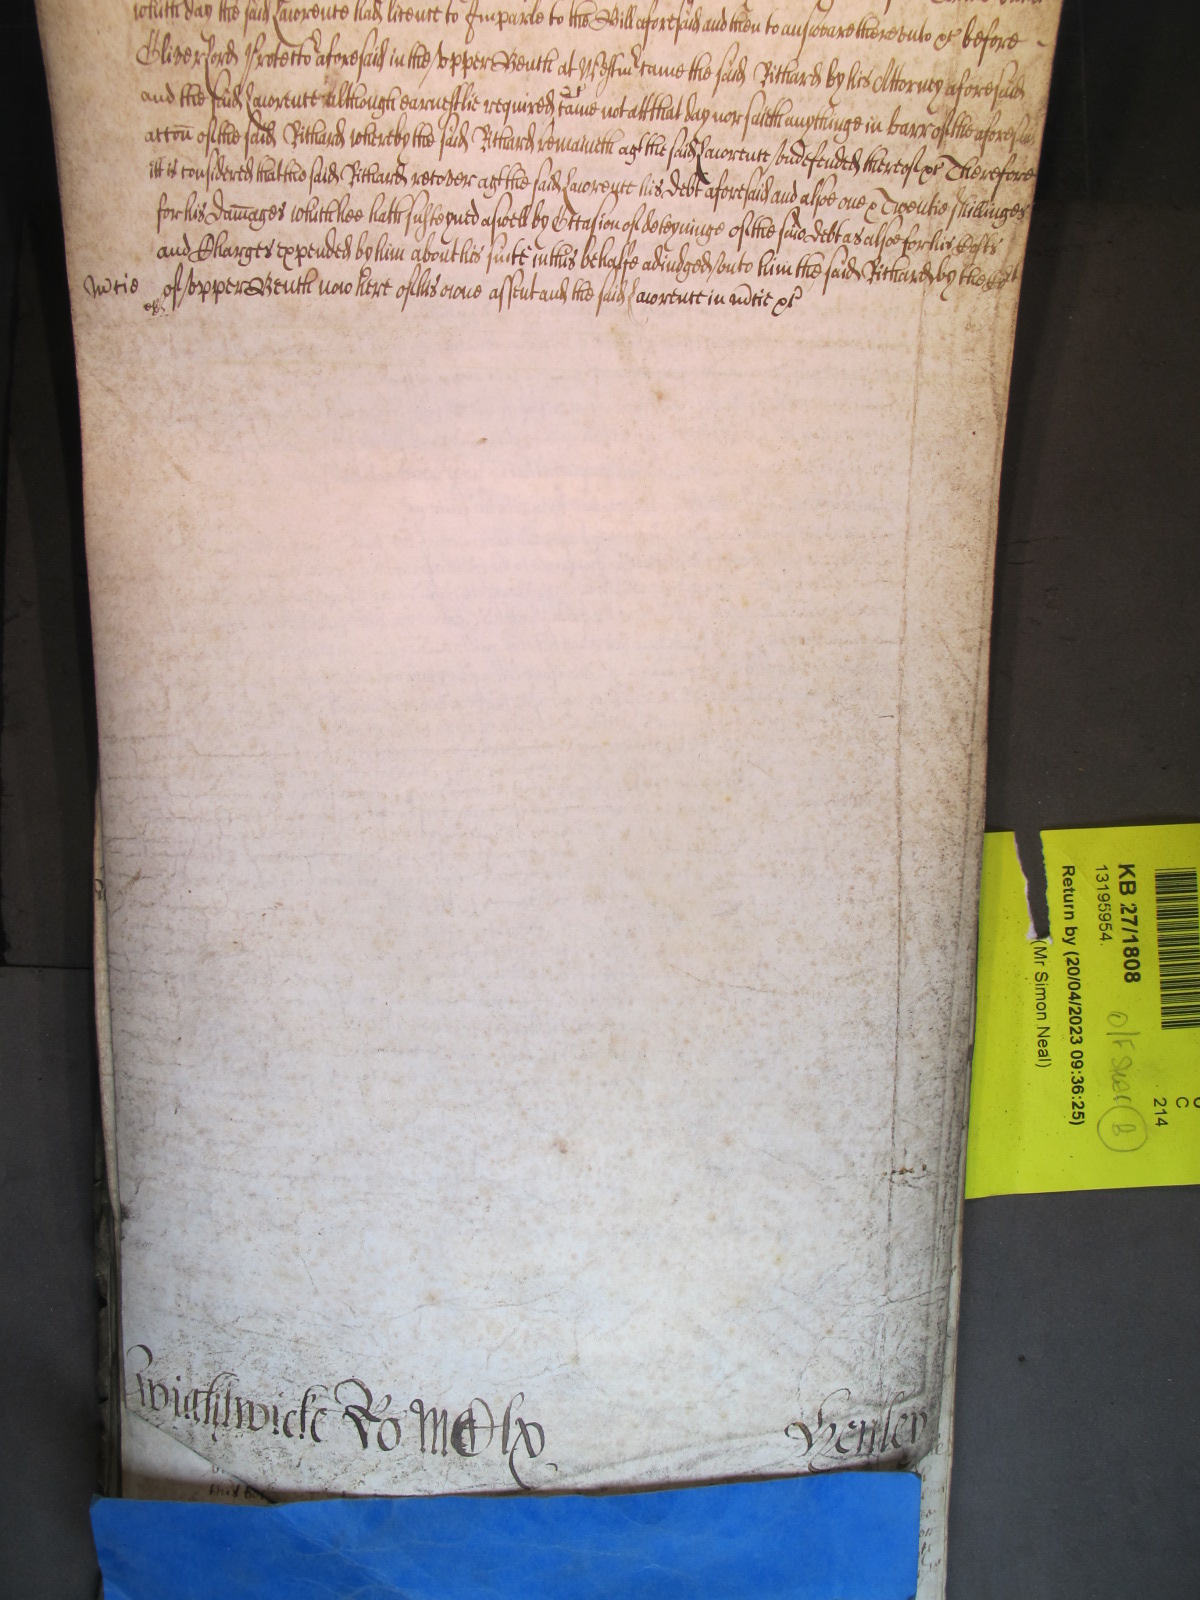 which day the said Lawrence had licence to Imparle to the Bill aforesaid and then to answeare thereunto &c before
Oliver Lord Protector aforesaid in the upper Bench at Westmr came the said Richard by his Attorney aforesaid
and the said Lawrence although earnestlie required came not att that day nor saieth anythinge in barr of the aforesaid
accon of the said Richard whereby the said Richard remaineth agt the said Lawrence undefended thereof &c Therefore
itt is considered that the said Richard recover agt the said Lawrence his debt aforesaid and alsoe one & Twentie shillinges
for his damages which hee hath susteyned aswell by Occasion of deteyninge of the said debt as alsoe for his Costs
and Charges expended by him about his suite in this behalfe adiudged unto him the said Richard by the Cort
mcie of upper Bench now here of his owne assent and the said Lawrence in mcie &c
Wightwicke Ro MCClx
Henley
KB 27/1808
13195954
Return by (20/04/2023 09:36:25)
(Mr Simon Neal)
C
214
B